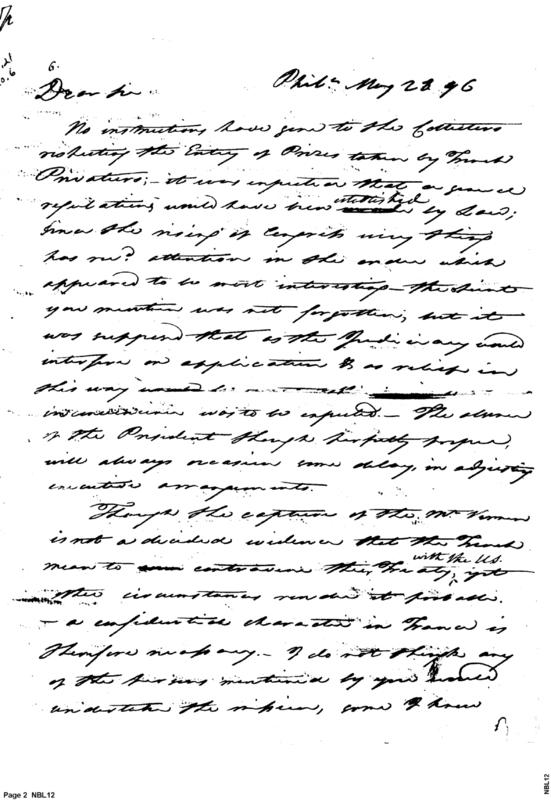 6.
Dear Sir
Phila. May 28 96
No instructions have gone to the Collectors
respecting the Entry of Prizes taken by French
Privateers; – it was expected that a general
regulation would have been established by Law;
Since the rising of Congress every thing
has recd. attention in the order which
appeared to be most interesting – the hint
you mention was not forgotten, but it
was supposed that as the Judiciary would
interfere on application & as relief in
this way
inconvenience was to be expected – The absence
of the President though perfectly proper,
will always occasion some delay, in adjusting
executive arrangements.
Though the capture of the Mt. Vernon
is not a decided evidence that the French
mean to contravene their Treaty with the US. yet
other circumstances render it probable.
– a confidential character in France is
therefore necessary – I do not think any
of the persons mentioned by you would
undertake the mission, some I know
Page 2 NBL12
NBL12